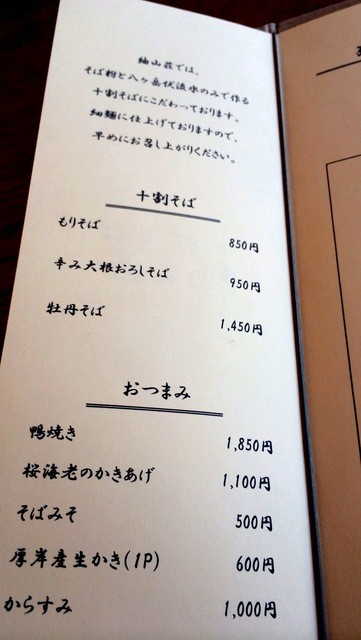 紬山荘では、
そば粉と八ヶ岳伏流水のみで作る
十割そばにこだわっております。
細麺に仕上げておりますので、
早めにお召し上がりください。
十割そば
もりそば 850円
辛み大根おろしそば 950円
牡丹そば 1,450円
おつまみ
鴨焼き 1,850円
桜海老のかきあげ 1,100円
そばみそ 500円
厚岸産生かき(1P) 600円
からすみ 1,000円